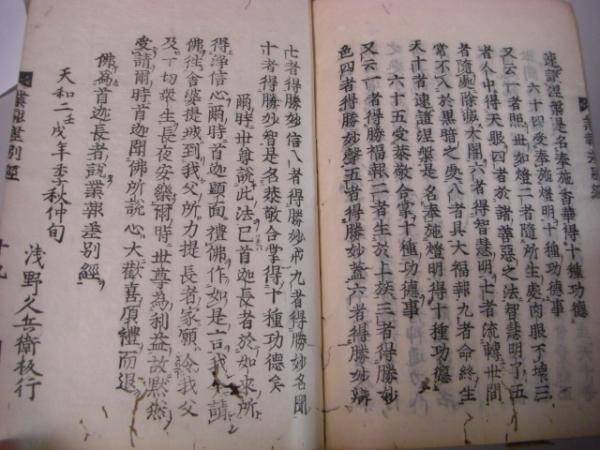 速證涅槃是名奉施香華得十種功德
六十四受奉施燈明十種功德事
又云一者照世如燈二者隨所生處肉眼不壞三
者得於天眼四者於諸善惡之法智慧明了五
者隨處除滅大闇六者得智慧明七者流轉世間
常不入於黑暗之處八者具大福報九者命終生
天十者速證涅槃是名奉施燈明得十種功德
六十五受恭敬合掌十種功德事
又云一者得勝福報二者生於上族三者得勝妙
色四者得勝妙聲五者得勝妙蓋六者得勝妙辯
七者得勝妙信八者得勝妙戒九者得勝妙名聞
十者得勝妙智是名恭敬合掌得十種功德矣
爾時世尊說此法已首迦長者於如來所
得淨信心爾時首迦頭面禮佛作如是言我今請
佛往舍婆提城到我父所力提長者家願令我父
及一切衆生長夜安樂爾時世尊為利益故默然
受請爾時首迦聞佛所說心大歡喜頂禮而退
佛為首迦長者說業報差別經
天和二壬戌年季秋仲旬
淺野久兵衛板行
業報差別經